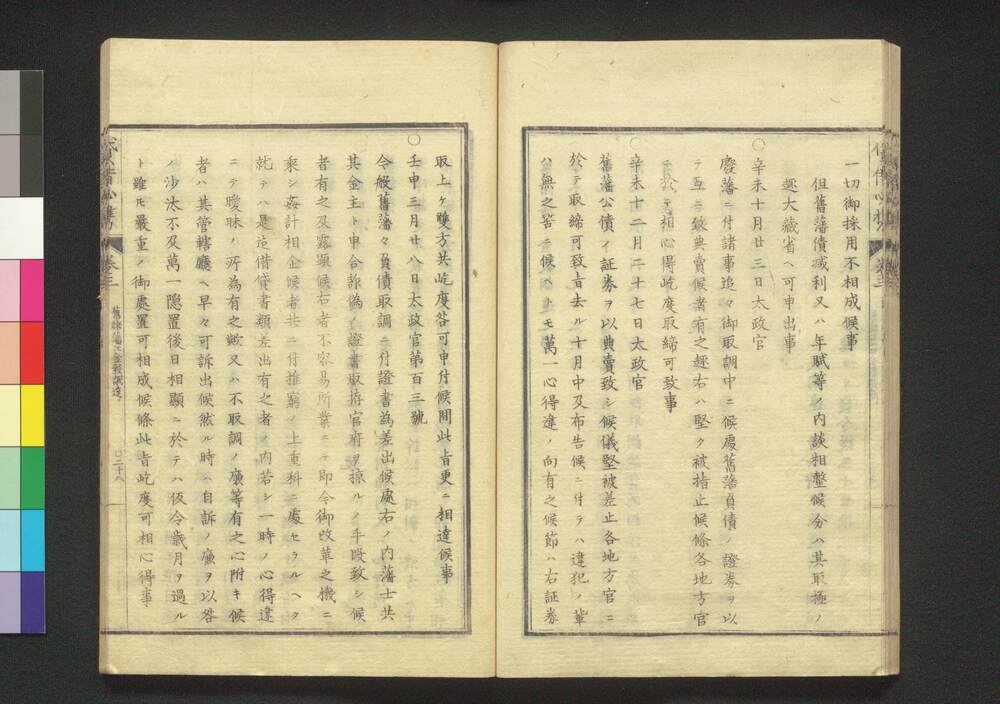 一切御採用不相成候事
但舊藩債減利又ハ年賦等ノ内談相整候分ハ其取極ノ
趣大藏省ヘ可申出事
〇辛未十月廿三日太政官
廢藩ニ付諸事追々御取調中ニ候處舊藩負債ノ證券ヲ以
テ互ニ致典賣候者有之趣右ハ堅ク被指止候條各地方官
ニ於テ相心得屹度取締可致事
〇辛未十二月二十七日太政官
舊藩公債ノ証券ヲ以典賣致シ候儀堅被差止各地方官ニ
於テ取締可致旨去ル十月中及布告候ニ付テハ違犯ノ輩
ハ無之筈ニ候ヘトモ萬一心得違ノ向有之候節ハ右証券
取上ケ雙方共屹度咎可申付候間此旨更ニ相達候事
〇壬申三月廿八日太政官第百三號
今般舊藩々負債取調ニ付證書為差出候處右ノ内藩士共
其金主ト申合詐偽ノ證書取拵官府ヲ掠ルノ手段致シ候
者有之及露顯候右者不容易所業ニテ即今御改革之機ニ
乗シ姦計相企候者共ニ付推窮ノ上重科ニ處セラルヘク
就テハ是迄借貸書類差出有之者ノ内若シ一時ノ心得違
ニテ曖昧ノ所為有之歟又ハ不取調ノ廉等有之心附キ候
者ハ其管轄廳ヘ早々可訴出候然ル時ハ自訴ノ廉ヲ以咎
ノ沙汰不及萬一隠置後日相顯ニ於テハ仮令歳月ヲ過ル
ト雖モ嚴重ノ御處置可相成候條此旨屹度可相心得事